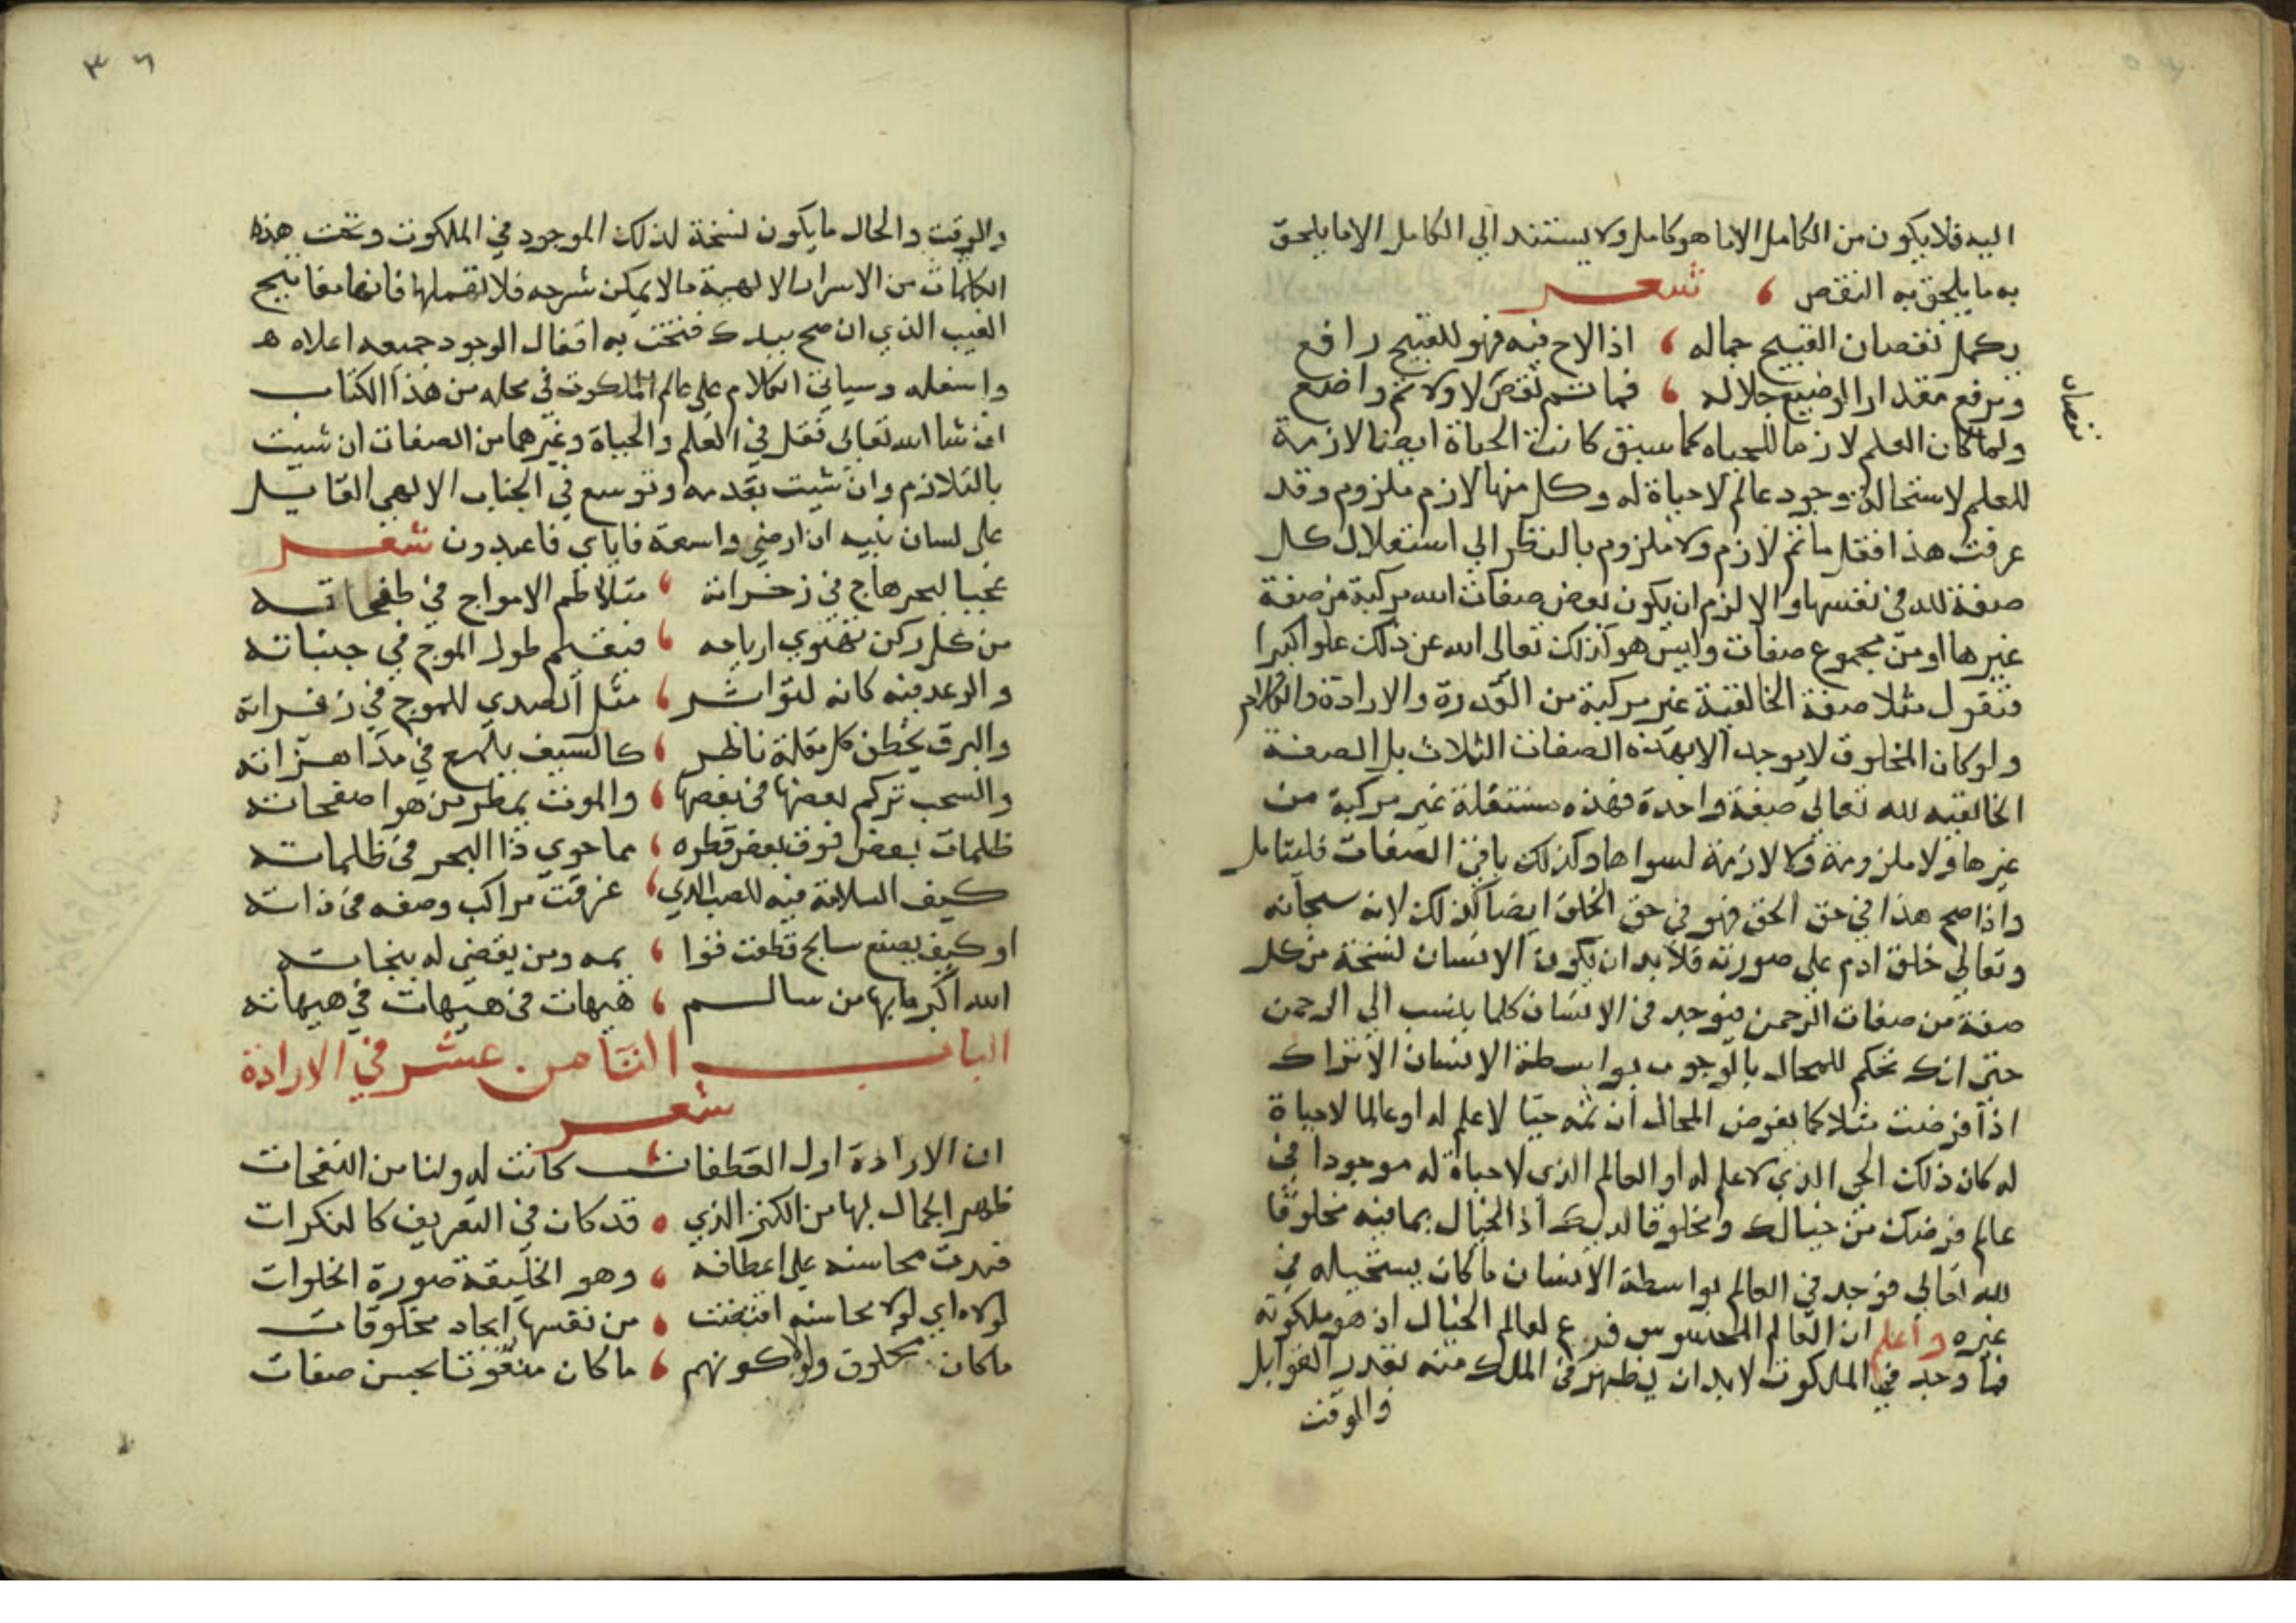 اليه فلا يكون من الكامل الا ما هو كامل ولا يستند الي الكامل الا ما يلحق
به ما يلحق به النقص ، شعر
يكمل نقصان القبيح جماله ، اذا لاح فيه فهو للقبيح رافع
ويرفع مقدار الوضيع جلاله ، فما ثم نقص لا ولا ثم واضع
نقصان
ولما كان العلم لازما للحياه كما سبق كانت الحياة ايضا لازمة
للعلم لاستحالة وجود عالم لا حياة له وكل منها لازم ملزوم وقد
عرفت هذا فقل ما ثم لازم ولا ملزوم بالنظر الي استقلال كل
صفة لله في نفسها والا لزم ان يكون بعض صفات الله مركبة من صفة
غيرها او من مجموع صفات وليس هو كذلك تعالى الله عن ذلك علوا كبيرا
فنقول مثلا صفة الخالقية غير مركبة من القدرة والارادة والكلام
ولو كان المخلوق لا يوجد الا بهذه الصفات الثلاث بل الصفة
الخالقيه لله تعالي صفة واحدة فهذه مستقلة غير مركبة من
غيرها ولا ملزومة ولا لازمة لسواها وكذلك باقي الصفات فليتامل
واذا صح هذا في حق الحق فهو في حق الخلق ايضا كذلك لانه سبحانه
وتعالي خلق ادم علي صورته فلا بد ان يكون الانسان نسخة من كل
صفة من صفات الرحمن فيوجد في الانسان كلما ينسب الي الرحمن
حتى انك تحكم للمحال بالوجوب بواسطة الانسان الا تراك
اذا فرضت مثلا كما يفرض المحال ان ثمه حيا لا علم له او عالما لا حياة
له كان ذلك الحي الذي لا علم له او العالم الذي لا حياة له موجودا في
عالم فرضك من خيالك ومخلوقا لديك اذ الخيال بما فيه مخلوقا
لله تعالي فوجد في العالم بواسطة الانسان ما كان يستحيله في
غيره واعلم ان العالم المحسوس فرع لعالم الخيال اذ هو ملكوته
فما وجد في الملكوت لا بد ان يظهر في الملك منه بقدر القوابل
والوقت
٣٦
والوقت والحال ما يكون نسخة لذلك الموجود في الملكوت وتحت هذه
الكلمات من الاسرار الالهية ما لا يمكن شرحه فلا تهملها فانها مفاتيح
الغيب الذي ان صح بيدك فتحت به اقفال الوجود جميعه اعلاه
واسفله وسياتي الكلام علي عالم الملكوت في محله من هذا الكتاب
ان شا الله تعالى فقل في العلم والحياة وغيرهما من الصفات ان شيت
بالتلازم وان شيت بعدمه وتوسع في الجناب الالهي القايل
على لسان نبيه ان ارضي واسعة فاياي فاعبدون شعر
عجبا لبحر هاج في زخراته ، متلاطم الامواج في طفحاته
من كل ركن تهتوي ارياحه ، فيقلم طول الموج في جنباته
والرعد فيه كانه لتواتر ، مثل الصدي للموج في زفراته
والبرق يخطف كل مقلة ناظر ، كالسيف يلمع في مدا هزاته
والسحب تركم بعضها في بعضها ، والموت يمطر من هوا صفحاته
ظلمات بعض فوق بعض قطره ، مما حوي ذا البحر في ظلماته
كيف السلامة فيه للصب الذي ، غرقت مراكب وصفه في ذاته
او كيف يصنع سابح قطعت قوا ، يمه ومن يقضي له بنجاته
الله اكبر ما بها من سالم ، هيهات في هيهات في هيهاته
الباب الثامن عشر في الارادة
شعر
ان الارادة اول العطفات ، كانت له ولنا من النفحات
ظهر الجمال بها من الكنز الذي ، قد كان في التعريف كالنكرات
فبدت محاسنه على اعطافه ، وهو الخليقة صورة الخلوات
لولاه اي لولا محاسنه اقتضت ، من نفسها ايجاد مخلوقات
ما كان مخلوق ولولا كونهم ، ما كان منعوتا بحسن صفات